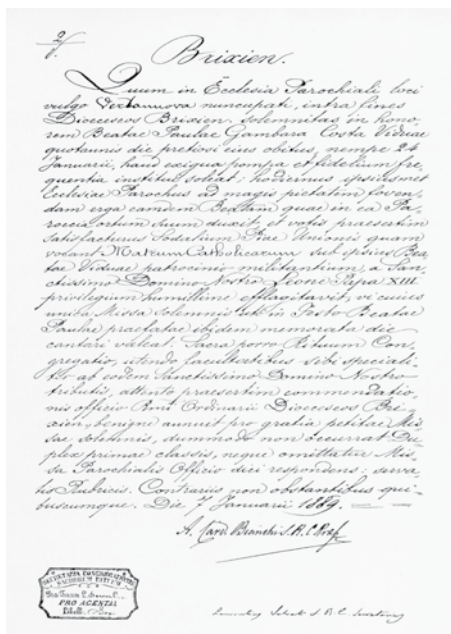 Brixien.
Quum in Ecclesia Parochiali loci
vulgo Verolanuova nuncupati, intra fines
Dioeceseos Brixien. solemnitas in hono-
rem Beatae Paulae Gambara Costa Viduae
quotannis die pretiosi eius obitus, nempe 24
Januarii, haud exigua pompa et fidelium fre-
quentia institui soleat: hodiernus ipsiusmet
Ecclesiae Parochus ad magis pietatem foven-
dam erga eamdem Beatam quae in ea Pa-
roecia ortum suum duxit, et votis praesertim
satisfacturus Sodalium Piae Unionis quam
vocant Matrum Catholicarum sub ipsius Bea-
tae Viduae patrocinio militantium, a San-
ctissimo Domino Nostro Leone Papa XIII
privilegium humillime efflagitavit, vi cuius
unica Missa solemnis uti in Festo Beatae
Paulae praefatae ibidem memorata die
cantari valeat. Sacra porro Rituum Con-
gregatio, utendo facultatibus sibi speciali-
ter ab eodem Sanctissimo Domino Nostro
tributis, attento praesertim commendatio-
nis officio Rmi Ordinarii Dioeceseos Bri-
xien, benigne annuit pro gratia petitae Mis-
sae solemnis, dummodo non occurrat Du-
plex primae classis, neque omittatur Mis-
sa Parochialis Officio diei respondens: serva-
tis Rubricis. Contrariis non obstantibus qui-
buscumque. Die 7 Januarii 1889.
A. Card. Bianchi S. R. C. Praef.
SECRETARIA CONGREGATIONIS
SACRORUM RITUUM
PRO AGENTIA